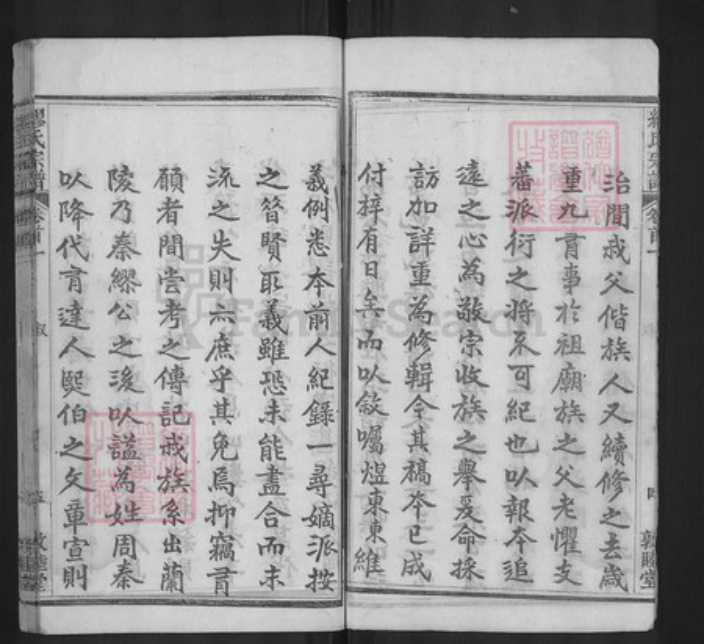 治間戒父偕族人又續修之去歲
重九有事於祖廟族之父老懼支
蕃派衍之將不可紀也以報本追
遠之心為敬宗收族之舉爰命採
訪加詳重為修輯今其稿本已成
付梓有日矣而以敘囑煜東東維
義例悉本前人紀錄一尋嫡派按
之簪賢取義雖恐未能盡合而末
流之失則亦庶乎其免焉抑竊有
願者間嘗考之傳記戒族系出蘭
陵乃秦繆公之後以諡為姓周秦
以降代有達人熙伯之文章宣則
繆氏宗譜
卷首一
敘
敦睦堂
FamilySearch